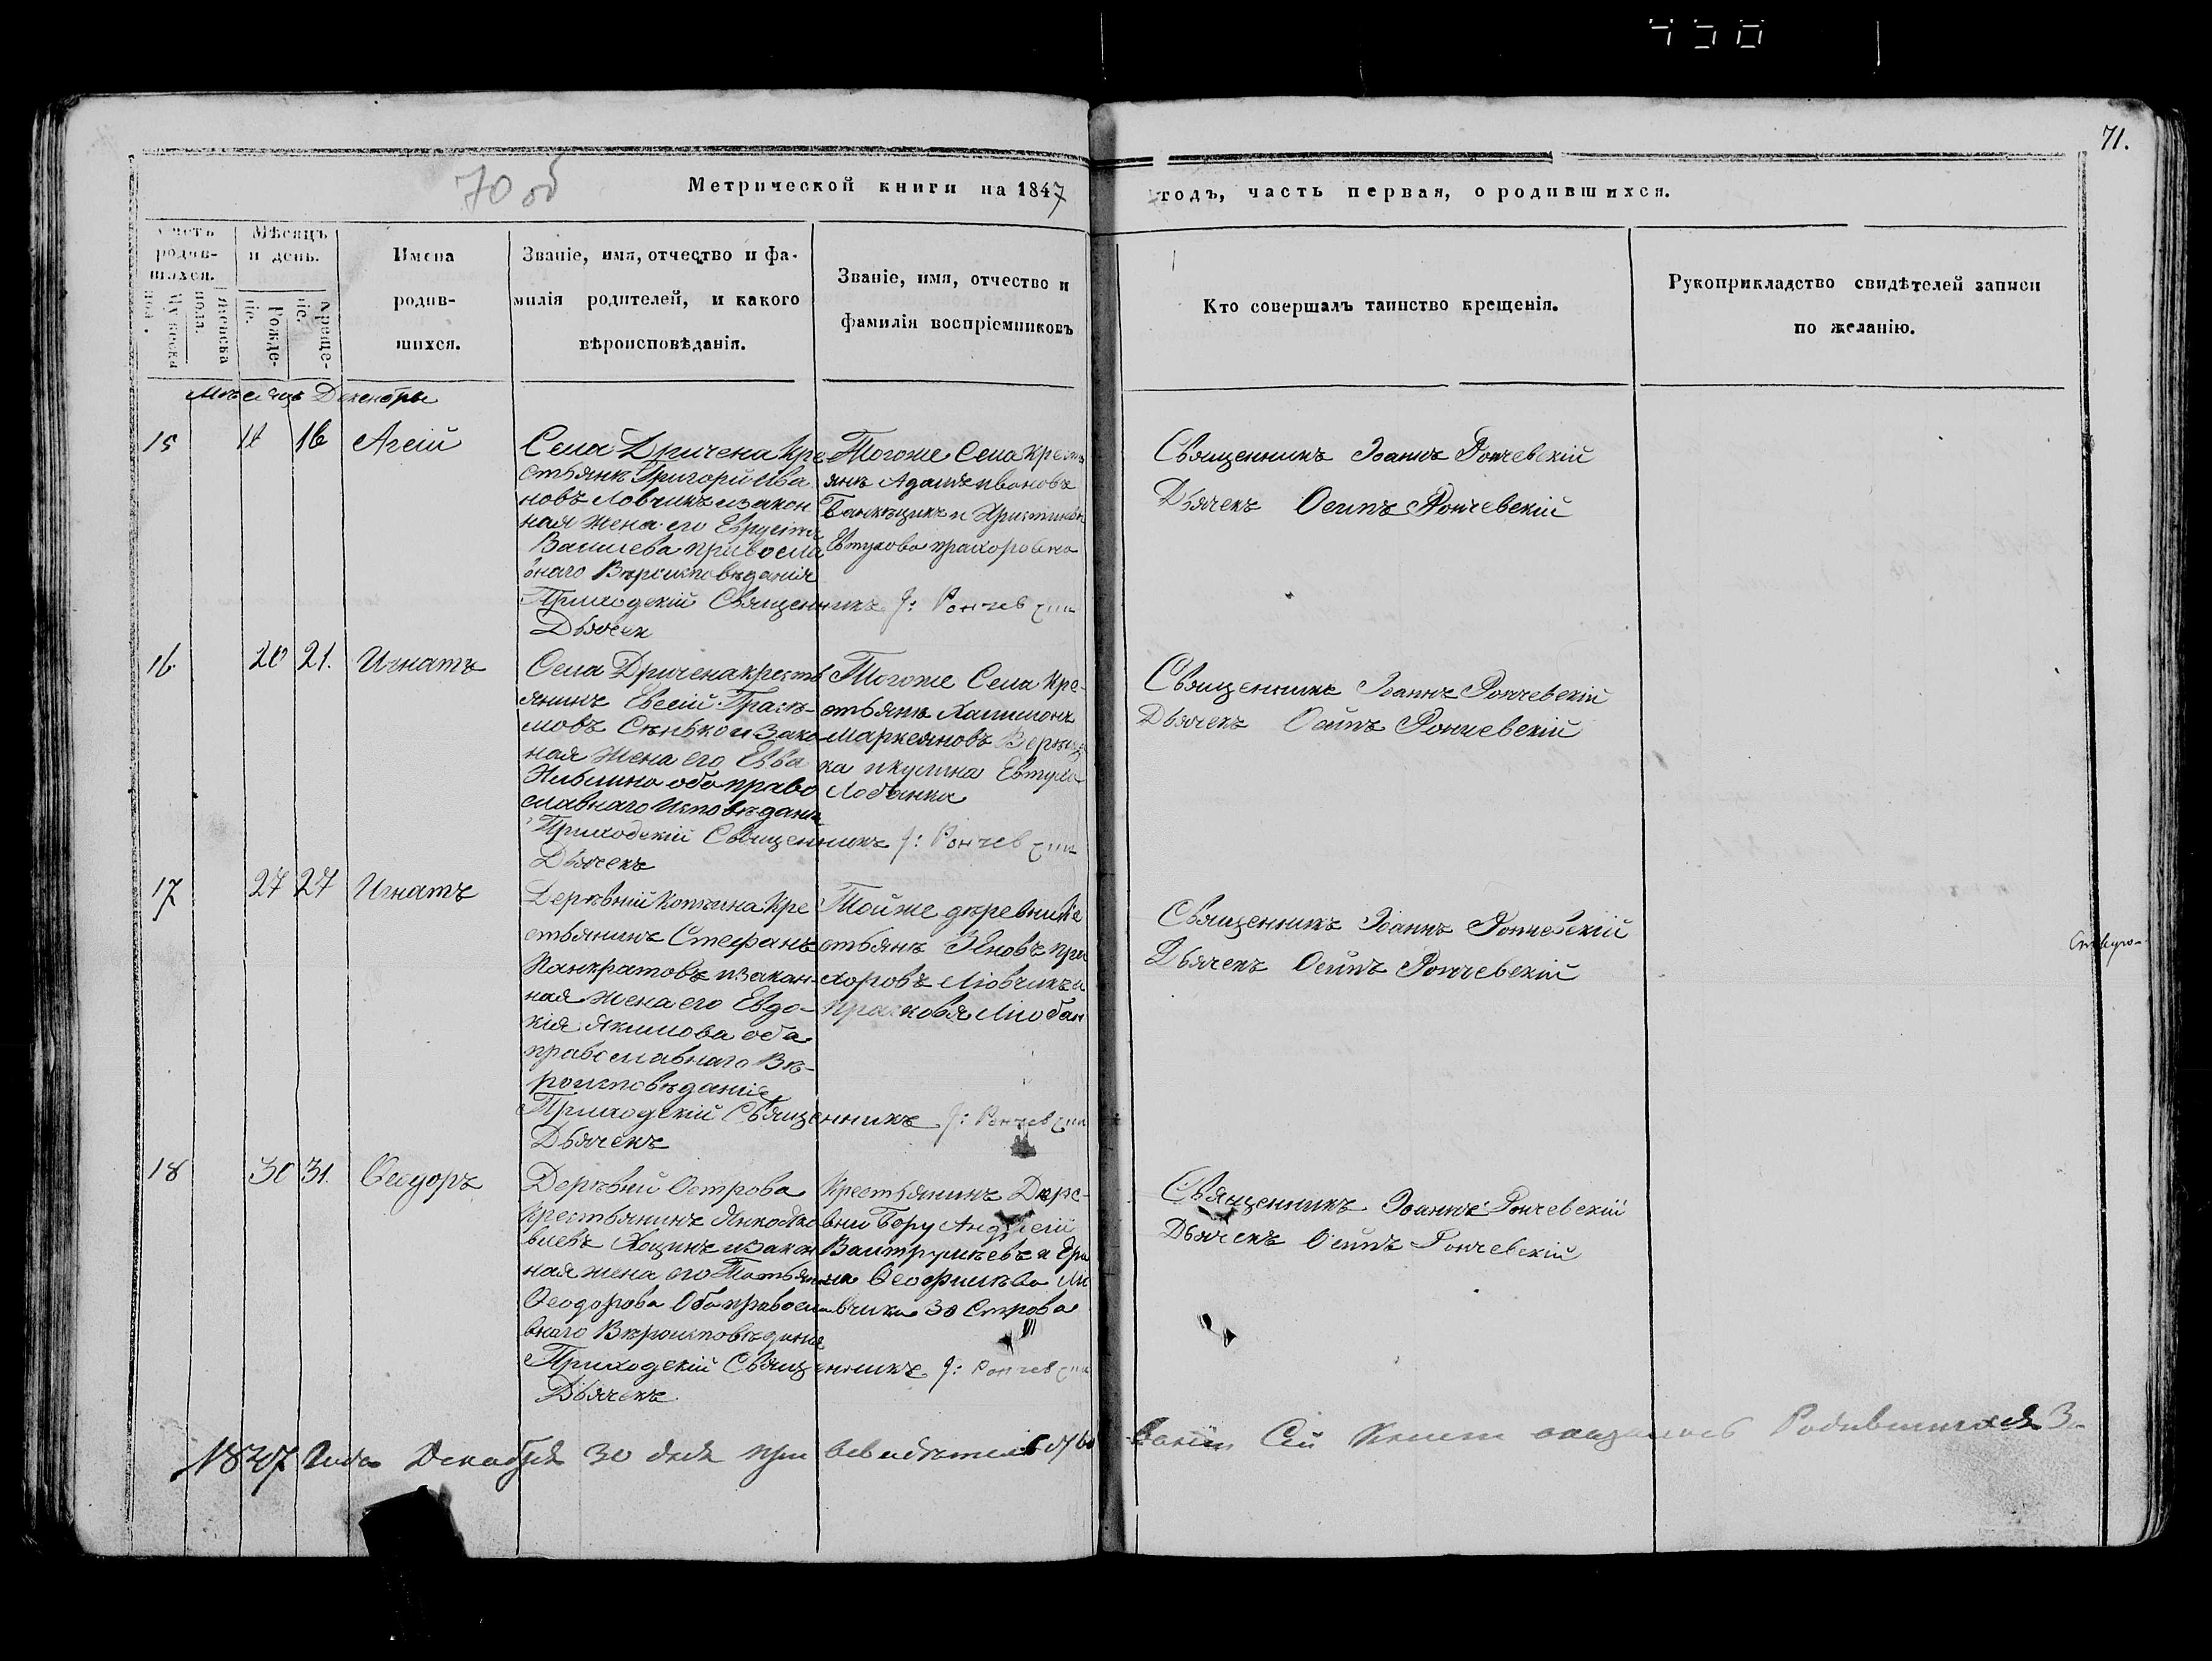 450
71.
70 об
Метрической книги на 1847
годъ, часть первая, о родившихся.
Счетъ родив-
шихся.
Мужеска пола.
Женска пола.
Мѣсяцъ
и день.
Рожде-
ніе.
Креще-
ніе.
Имена
родив-
шихся.
Званіе, имя, отчество и фа-
милія родителей, и какого
вѣроисповѣданія.
Званіе, имя, отчество и
фамилія воспріемниковъ
Кто совершалъ таинство крещенія.
Рукоприкладство свидѣтелей записи
по желанію.
Мѣсяцъ Декабрь
15 16 Агей
Села Дричена Кре
стьянъ Григорій Ива
новъ Ловчикъ изакон
ная жена его
Василева правосла
внаго Вѣроисповѣданія
Приходскій Священникъ І: Рончевскій
Дьячек
Тогоже Села Крестъ
янъ Адамъ ивановъ
Евтухова прахоровна
Священникъ Іоаннъ Рончевскій
Дьячекъ Осипъ Рончевскій
16 20 21. Игнатъ
Села Дричена крестъ
янинъ Евсей Герасѣ-
мовъ Сѣнько и Зако
ная жена его Евва
обаправо
славнаго Исповѣдания
Приходскій Священникъ І: Рончевскій
Дьячекъ
Тогоже Села Кре-
стьянъ Халимонъ
Маркеяновъ
ка икулина
Лобынка
Священникъ Іоаннъ Рончевскій
Дьячекъ Осипъ Рончевскій
17 27 27 Игнатъ
Деревній Копѣина Кре
стьянинъ Стефанъ
Панкратовъ изакон-
ная жена его Евдо-
кія Якимова оба
православнаго Вѣ-
роисповѣданіе
Приходскій Священникъ І: Рончевскій
Дьячекъ
Тойже дѣревни Ке
стьянъ Зеновъ пра
хоровъ Ловчикъ и
прасковя Любан
Священникъ Іоаннъ Рончевскій
Дьячекъ Осипъ Рончевскій
18 30 31. Ѳеодоръ
Деревній Острова
крестьянинъ Янко Яко
влевъ Хоцинъ изакон
ная жена его Татьян
Ѳеодорова Оба правосла
внаго Вѣроисповѣдание
Приходскій Священникъ І: Рончевскій
Дьячекъ
Крестьянинъ Дере-
вни Бору Андрей
на Ѳеофилѣва
вчика 30 Строва
Священникъ Іоаннъ Рончевскій
Дьячекъ Осипъ Рончевскій
1847 Года Декабря 30 дня при освидѣтельство
вании Сей Книги оказалось Родившихся 3